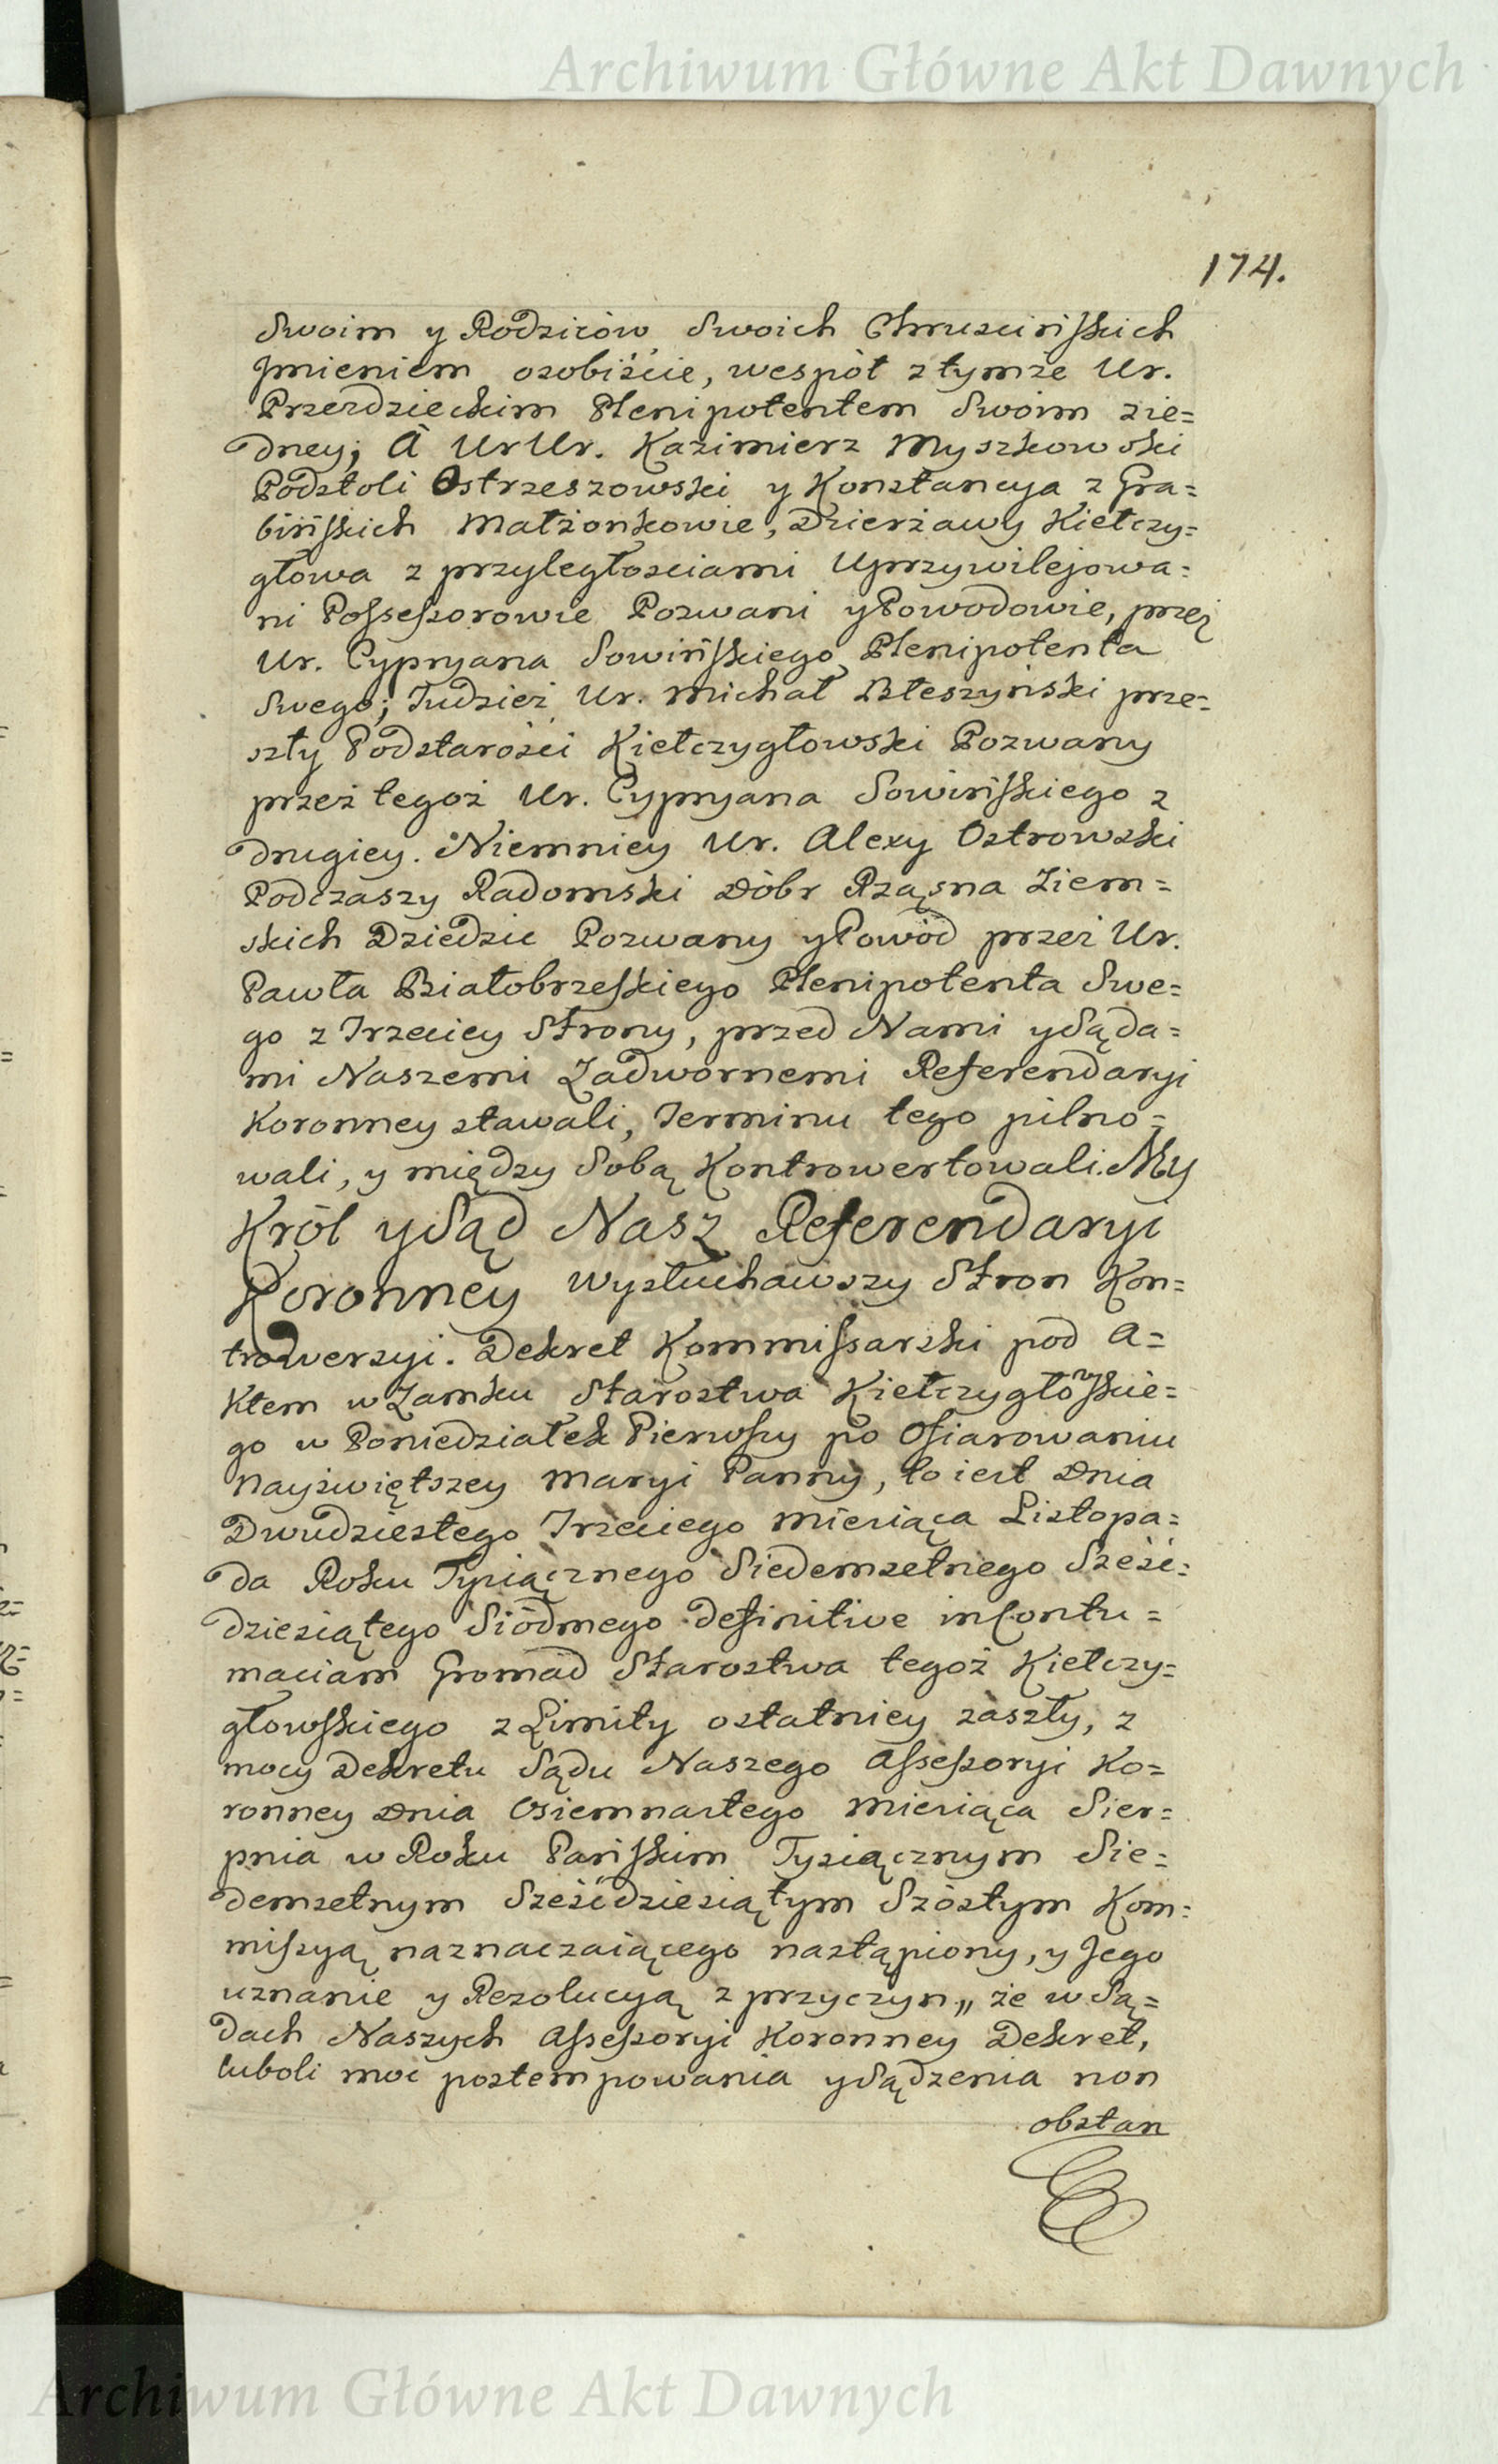 Archiwum Główne Akt Dawnych
174.
Swoim y Rodziców Swoich Chruscińskich
Jmieniem osobiście, wespół z tymże Ur.
Przerdzieckim Plenipotentem Swoim zie=
dney; A UrUr. Kazimierz Myszkowski
Podstoli Ostrzeszowski y Konstancya z Gra=
bińskich Małżonkowie, Dzierżawy Kiełczy=
głowa z przyległościami Uprzywilejowa=
ni Possessorowie Pozwani y Powodowie, przez
Ur. Cypryana Sowińskiego Plenipotenta
Swego; Tudzież Ur. Michał Błeszyński prze=
szły Podstarości Kiełczygłowski Pozwany
przez tegoż Ur. Cypryana Sowińskiego z
drugiey. Niemniey Ur. Alexy Ostrowski
Podczaszy Radomski Dóbr Rząsna Ziem=
skich Dziedzic Pozwany y Powód przez Ur.
Pawła Białobrzeskiego Plenipotenta Swe=
go z Trzeciey Strony, przed Nami y Sąda=
mi Naszemi Zadwornemi Referendaryi
Koronney stawali, Terminu tego pilno=
wali, y między Sobą Kontrowertowali. My
Król y Sąd Nasz Referendaryi
Koronney wysłuchawszy Stron Kon=
trowersyi. Dekret Kommissarski pod A=
ktem w Zamku Starostwa Kiełczygłowskie=
go w Poniedziałek Pierwszy po Ofiarowaniu
Nayświętszey Maryi Panny, to iest Dnia
Dwudziestego Trzeciego Miesiąca Listopa=
da Roku Tysiącznego Siedemsetnego Sześć=
dziesiątego Siódmego definitive in Contu=
maciam Gromad Starostwa tegoż Kiełczy=
głowskiego z Limity ostatniey zaszły, z
mocy Dekretu Sądu Naszego Assessoryi Ko=
ronney Dnia Osiemnastego Miesiąca Sier=
pnia w Roku Pańskim Tysiącznym Sie=
demsetnym Sześćdziesiątym Szóstym Kom=
missyą naznaczaiącego nastąpiony, y Jego
uznanie y Rezolucyą z przyczyn„ że w Są=
dach Naszych Assessoryi Koronney Dekret,
luboli moc postempowania y Sądzenia non
obstan
Archiwum Główne Akt Dawnych